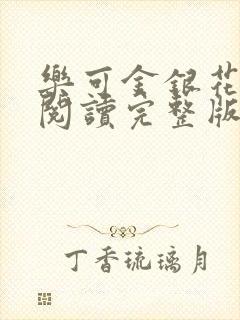 樂可金銀花
閱讀完整版
丁香琉璃月